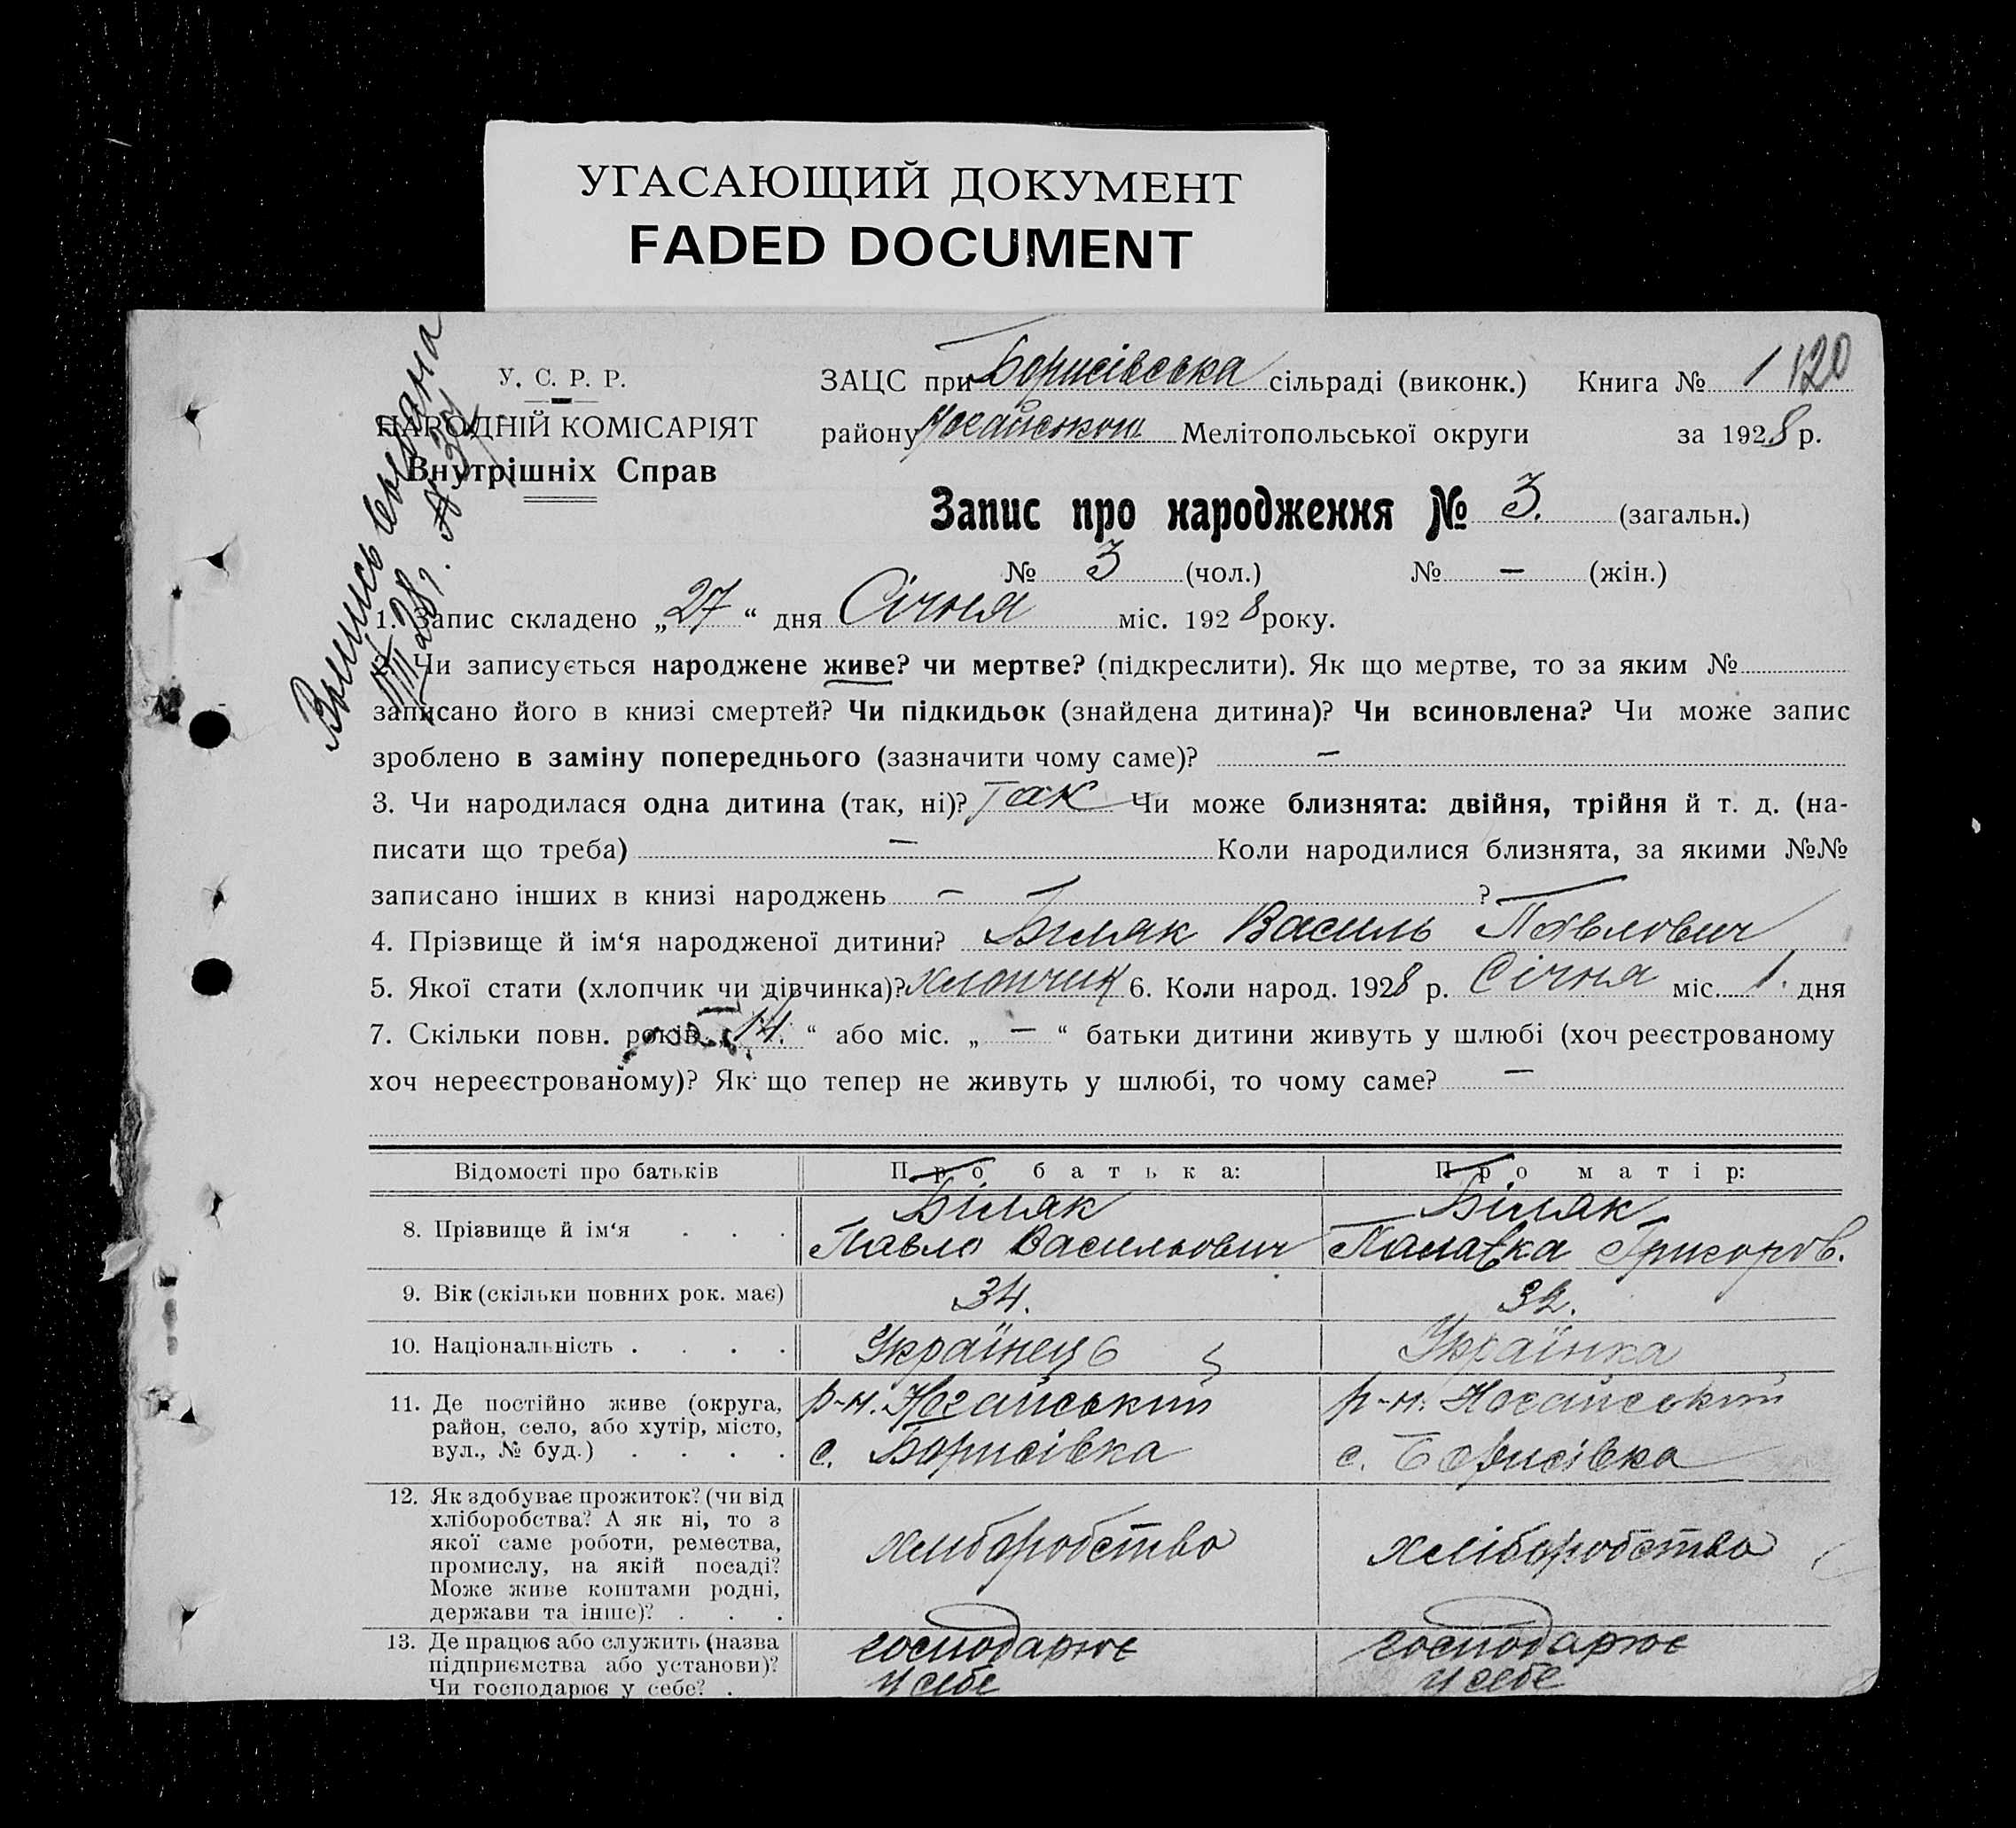 УГАСАЮЩИЙ ДОКУМЕНТ
FADED DOCUMENT
У. С. Р. Р.
НАРОДНІЙ КОМІСАРІЯТ
Внутрішніх Справ
ЗАЦС при Борисівська сільраді (виконк.) Книга № 1 120
району Ногайськом Мелітопольської округи за 1928 р.
Запис про народження № 3. (загальн.)
№ 3 (чол.) № — (жін.)
Выпись выдана
1. Запис складено „27“ дня Січня міс. 1928 року.
Чи записується народжене живе? чи мертве? (підкреслити). Як що мертве, то за яким №
записано його в книзі смертей? Чи підкидьок (знайдена дитина)? Чи всиновлена? Чи може запис
зроблено в заміну попереднього (зазначити чому саме)? —
3. Чи народилася одна дитина (так, ні)? Так Чи може близнята: двійня, трійня й т. д. (на-
писати що треба) — Коли народилися близнята, за якими №№
записано інших в книзі народжень — ?
4. Прізвище й ім‘я народженої дитини? Біляк Василь Павлович
5. Якої стати (хлопчик чи дівчинка)? хлопчик 6. Коли народ. 1928 р. Січня міс. 1. дня
7. Скільки повн. років „14.“ або міс. „ — “ батьки дитини живуть у шлюбі (хоч реєстрованому
хоч нереєстрованому)? Як що тепер не живуть у шлюбі, то чому саме? —
Відомості про батьків Про батька: Про матір:
8. Прізвище й ім‘я . . . Біляк Павло Васильович Біляк Григоров.
9. Вік (скільки повних рок. має) 34. 32.
10. Національність . . . . Українець Українка
11. Де постійно живе (округа, район, село, або хутір, місто, вул., № буд.) . . . . р-н. Ногайський с. Борисівка р-н. Ногайський с. Борисівка
12. Як здобуває прожиток? (чи від хліборобства? А як ні, то з якої саме роботи, ремества, промислу, на якій посаді? Може живе коштами родні, держави та інше)? . . . хліборобство хліборобства
13. Де працює або служить (назва підприємства або установи)? Чи господарює у себе? . господарює у себе господарює у себе